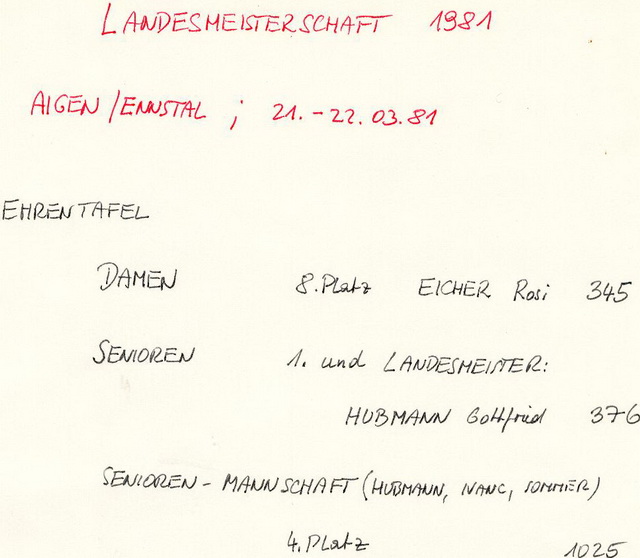 LANDESMEISTERSCHAFT 1981
AIGEN/ENNSTAL ; 21.-22.03.81
EHRENTAFEL
DAMEN 8.Platz EICHER Rosi 345
SENIOREN 1. und LANDESMEISTER:
HUBMANN Gottfried 376
SENIOREN-MANNSCHAFT (HUBMANN, IVANC, SOMMER)
4.Platz 1025